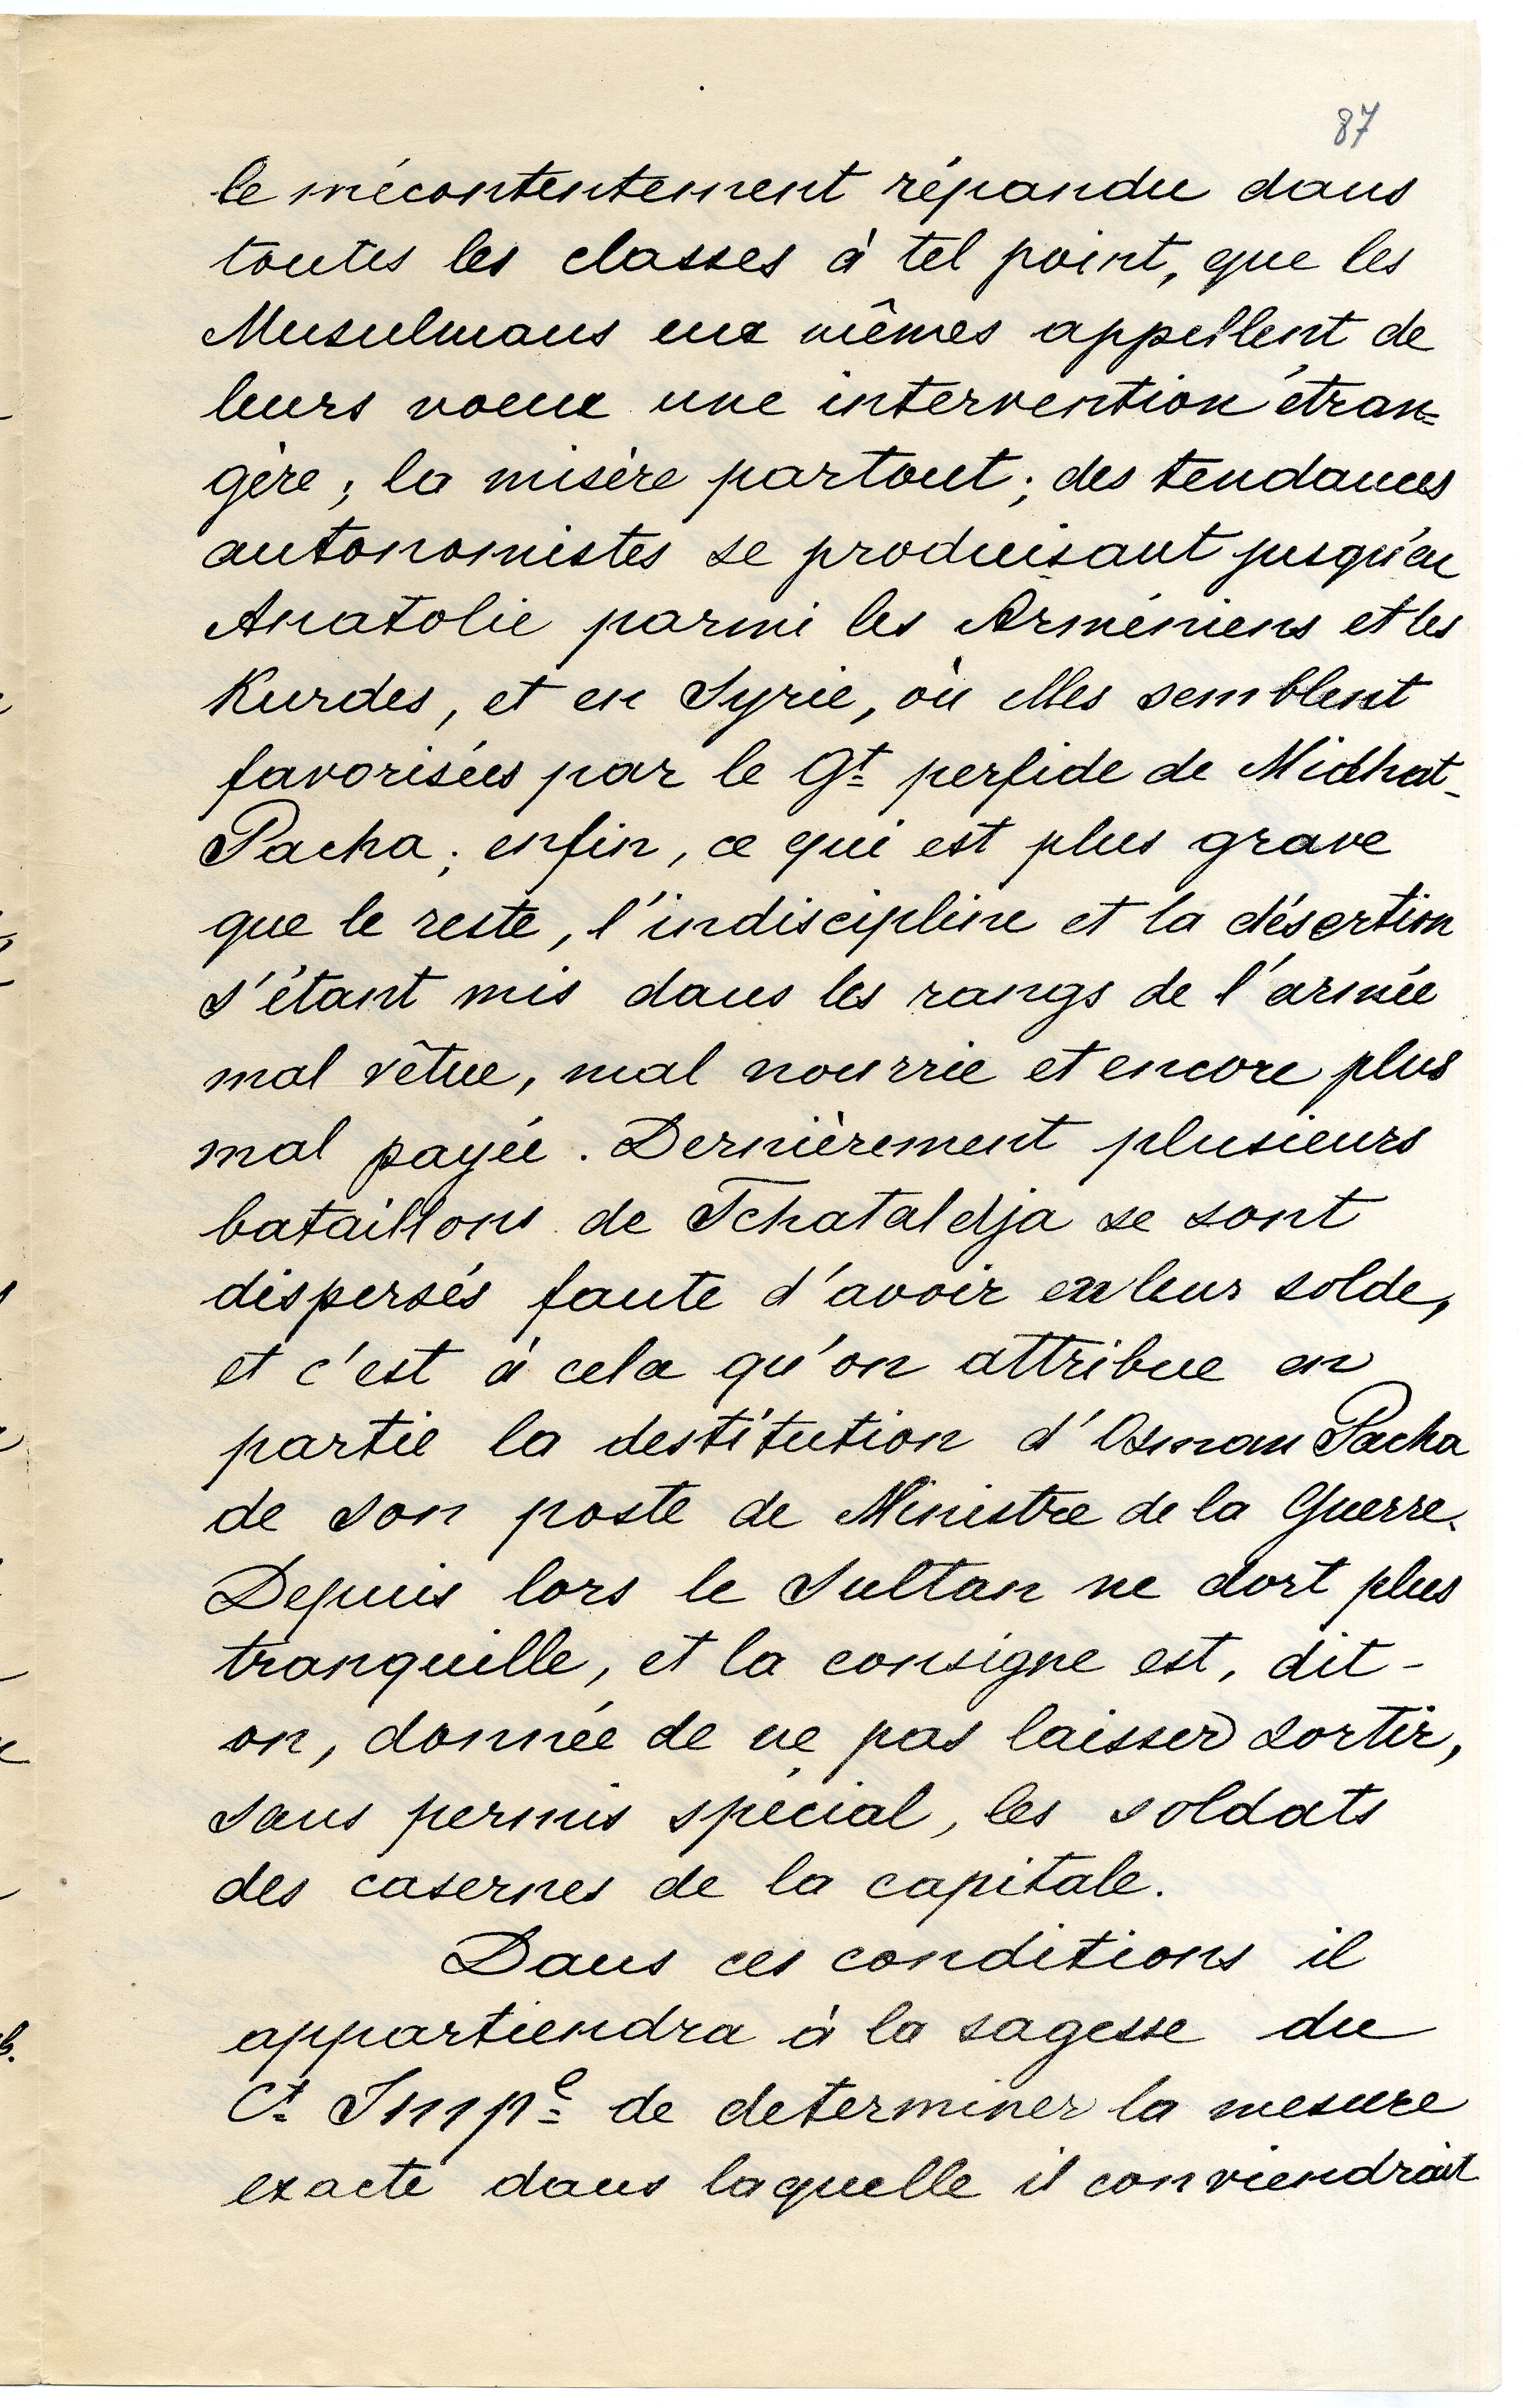 87
le mécontentement répandu dans
toutes les classes à tel point, que les
Musulmans eux mêmes appellent de
leurs voeux une intervention étran=
gère; la misère partout; des tendances
autonomistes se produisant jusqu'en
Anatolie parmi les Arméniens et les
Kurdes, et en Syrie, où elles semblent
favorisées par le Gt perfide de Midhat-
Pacha; enfin, ce qui est plus grave
que le reste, l'indiscipline et la désertion
s'étant mis dans les rangs de l'armée
mal vêtue, mal nourrie et encore plus
mal payée. Dernièrement plusieurs
bataillons de Tchataldja se sont
dispersés faute d'avoir eu leur solde,
et c'est à cela qu'on attribue en
partie la destitution d'Osman Pacha
de son poste de Ministre de la Guerre.
Depuis lors le Sultan ne dort plus
tranquille, et la consigne est, dit-
on, donnée de ne pas laisser sortir,
sans permis spécial, les soldats
des casernes de la capitale.
Dans ces conditions il
appartiendra à la sagesse du
Ct Impe de determiner la mesure
exacte dans laquelle il conviendrait